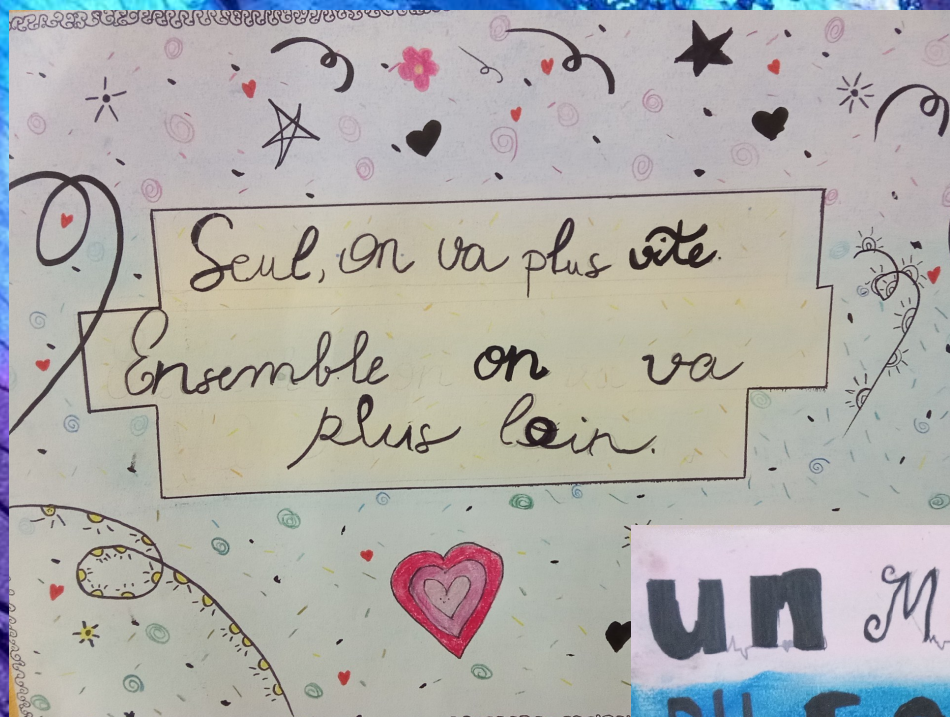 Seul, on va plus vite.
Ensemble on va
plus loin.
un M